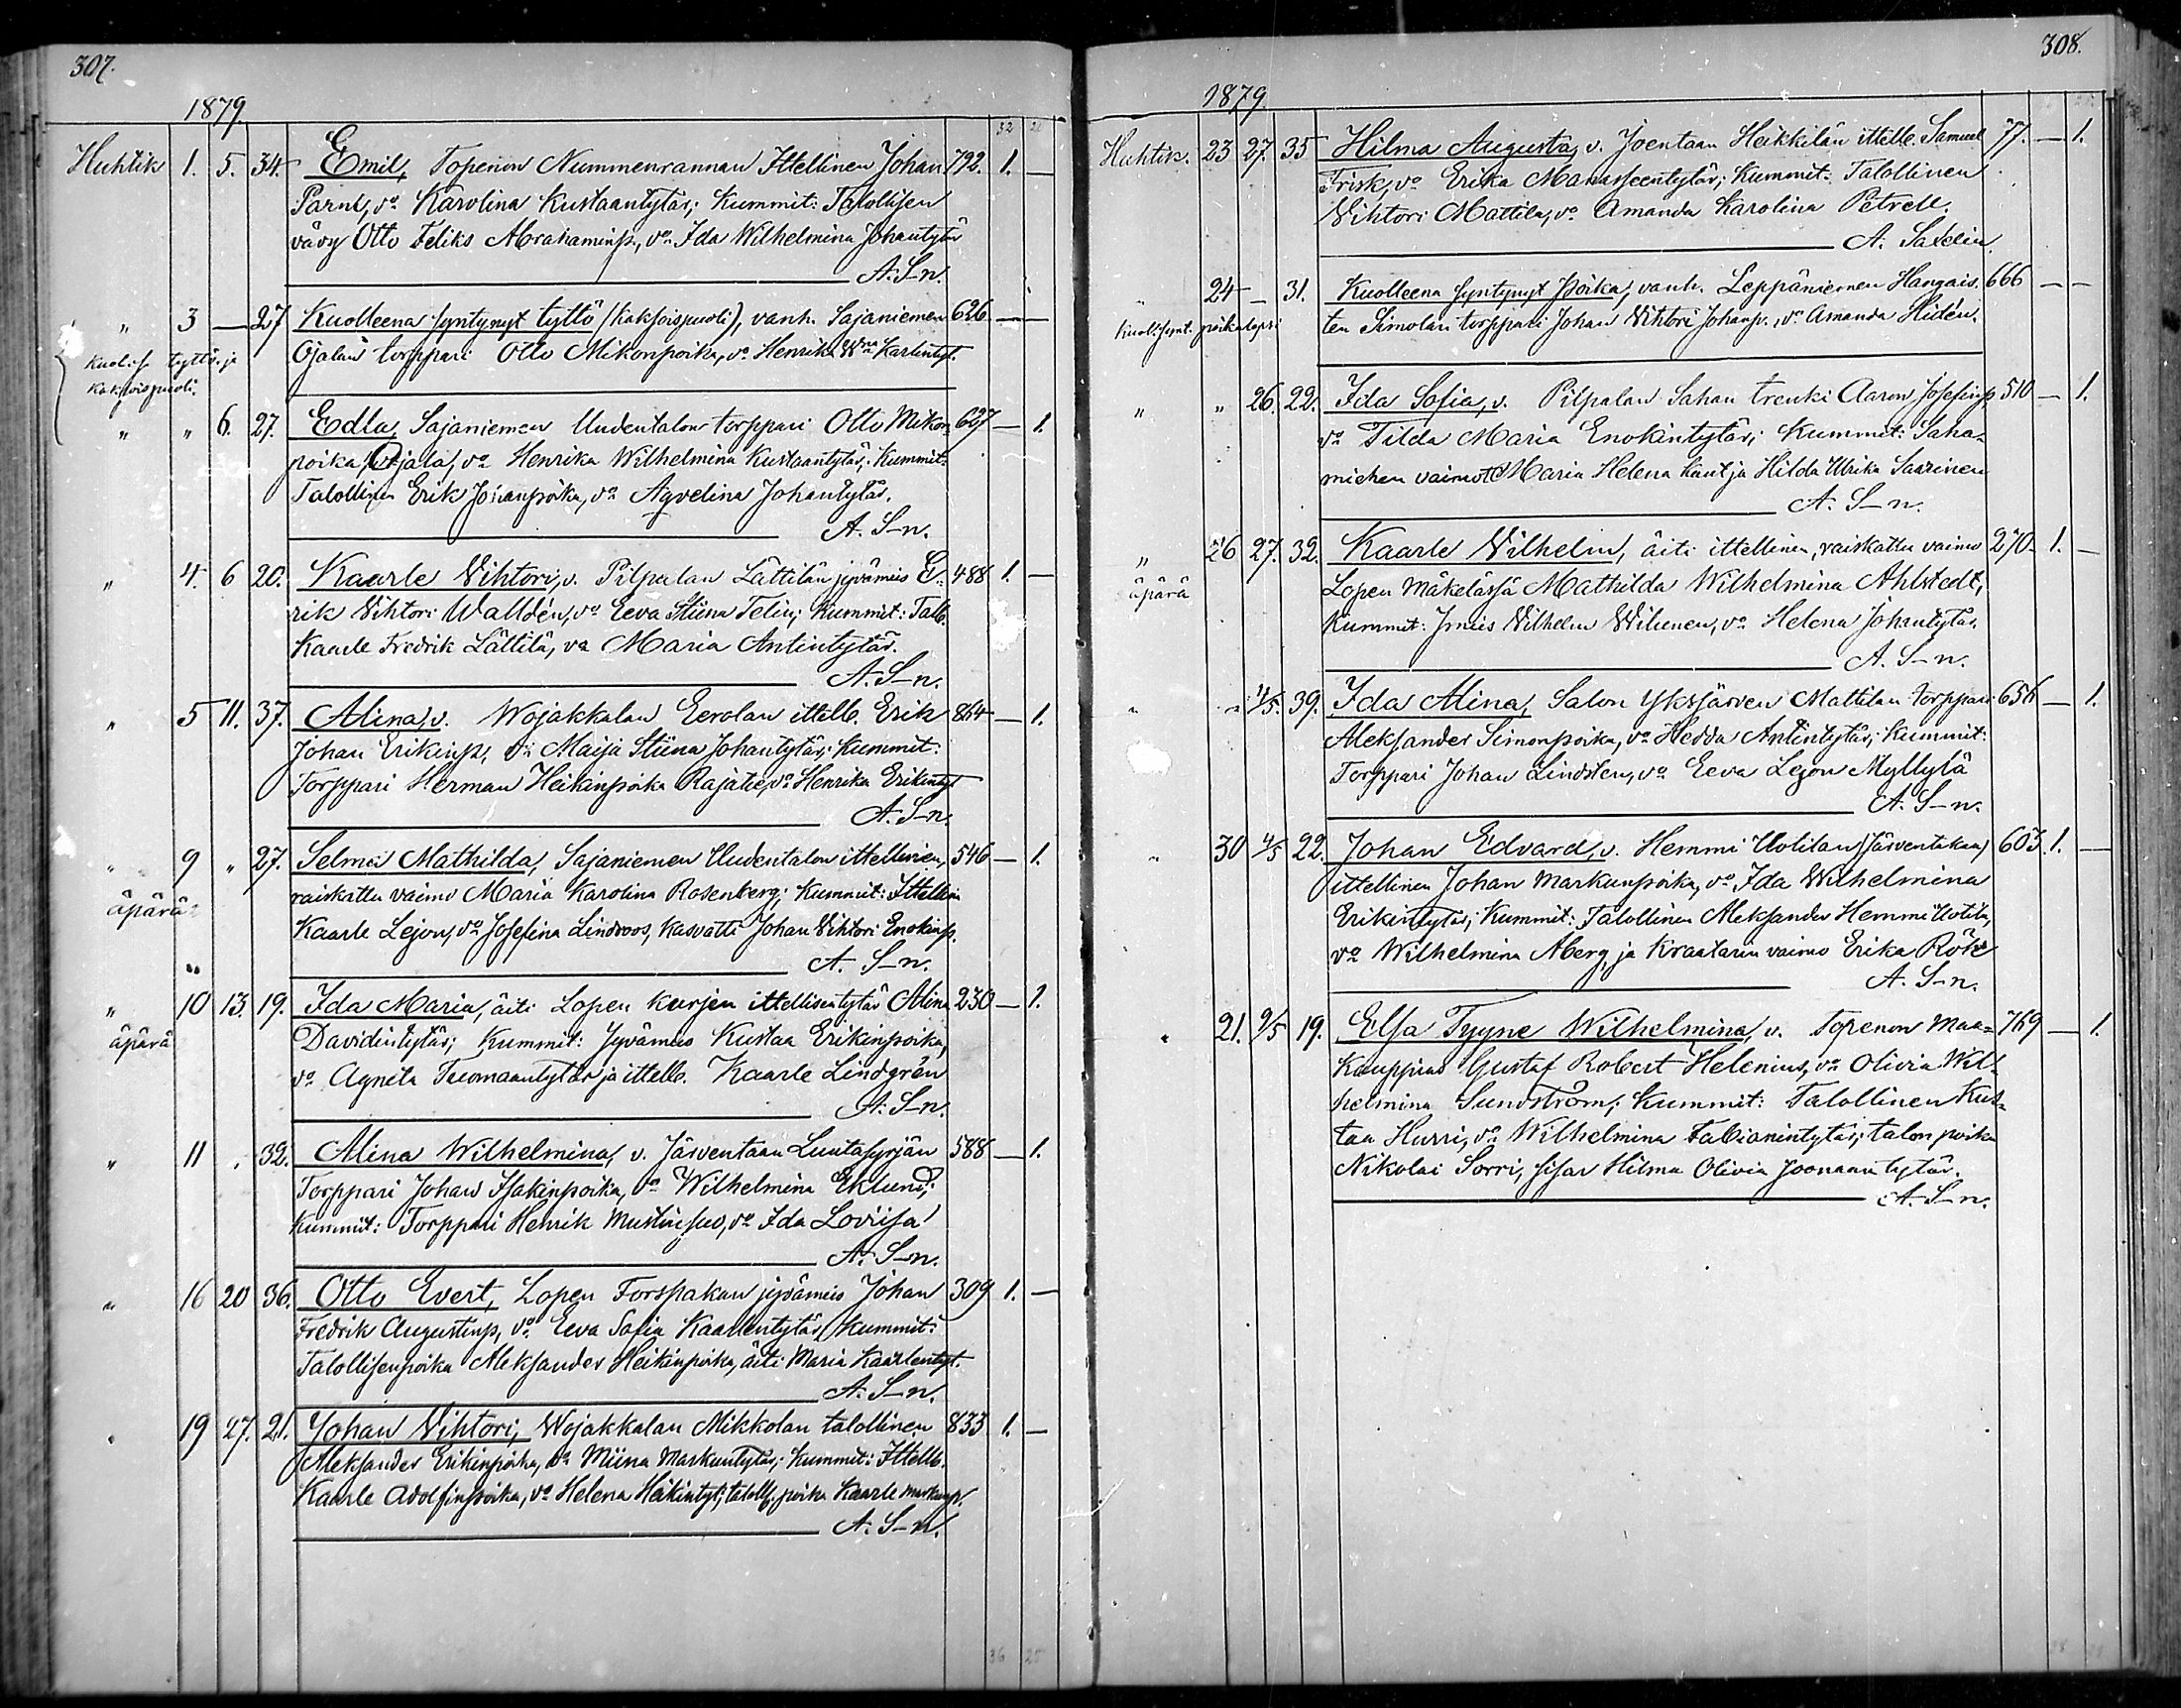 307.
1879.
32
Huhtik 1. 5. 34. Emil, Topenon Nummenrannan Ittellinen Johan 792. 1. —
Parni, va Karolina Kustaantytär; Kummit: Talollisen
vävy Otto Feliks Abrahaminp., va Ida Wilhelmina Johantytär
A. S-n.
" 3 — 27 Kuolleena syntynyt tyttö (kaksoispuoli), vanh. Sajaniemen 626 — —
Ojalan torppari Otto Mikonpoika, va Henrika Wna Karlintyt.
Kuol. s. tyttö ja
kaksoispuoli.
" " 6. 27. Edla, Sajaniemen Uudentalon torppari Otto Mikon- 627 — 1.
poika, Ojala, va Henrika Wilhelmina Kustaantytär; Kummit:
Talollinen Erik Johanpoika, va Agvelina Johantytär.
A. S-n.
" 4. 6 20. Kaarle Vihtori, v. Pilpalan Lättilän jyvämies E- 488 1. —
rik Vihtori Walldén, va Eeva Stiina Telin; Kummit: Talb.
Kaarle Fredrik Lättilä, va Maria Antintytär.
A. S-n.
" 5 11. 37. Alina, v. Wojakkalan Eerolan ittell. Erik 864 — 1.
Johan Erikinp., va Maija Stiina Johantytär; Kummit:
Torppari Herman Heikinpoika Rajatie, va Henrika Erikintyt
A. S-n.
" 9 " 27. Selma Mathilda, Sajaniemen Uudentalon ittellinen, 546 — 1.
äpärä
raiskattu vaimo Maria Karolina Rosenberg; Kummit: Ittellinen
Kaarle Lejon, va Josefina Lindroos, kasvatti Johan Vihtori Enokinp.
A. S-n.
" 10 13. 19. Ida Maria, äiti Lopen Kurjen ittellisentytär Alina 230 — 1.
äpärä
Davidintytär; Kummit: Jyvämies Kustaa Erikinpoika,
va Agneta Tuomaantytär ja ittell. Kaarle Lindgrén
A. S-n.
" 11 " 32. Alina Wilhelmina, v. Järventaan Luutasyrjän 588 — 1.
Torppari Johan Isakinpoika, va Wilhelmina Eklund;
Kummit: Torppari Henrik Mustinsuo, va Ida Loviisa
A. S-n.
" 16 20 36. Otto Evert, Lopen Forspakan jyvämies Johan 309 1. —
Fredrik Augustinp., va Eeva Sofia Kaarlentytär, Kummit:
Talollisenpoika Aleksander Heikinpoika, äiti Maria Kaarlentyt.
A. S-n.
" 19 27. 21. Johan Vihtori, Wojakkalan Mikkolan talollinen 833 1. —
Aleksander Erikinpoika, va Miina Markuntytär; Kummit: Ittell.
Kaarle Adolfinpoika, va Helena Heikintyt; talolls. poika Kaarle Markunp.
A. S-n.
36 25
308.
1879.
Huhtik. 23 27. 35 Hilma Augusta, v. Joentaan Heikkilän ittelle. Samuel 77. — 1.
Frisk, va Erika Manasseentytär; Kummit: Talollinen
Vihtori Mattila, va Amanda Karolina Petrell.
A. Saxelin.
" 24 — 31. Kuolleena syntynyt poika, vanh. Leppäniemen Hangais- 666 — —
Kuoll. synt. poikalapsi
ten Simolan torppari Johan Vihtori Johanp., va Amanda Hidén.
" " 26. 22. Ida Sofia, v. Pilpalan Sahan trenki Aaron Josefinp. 510 — 1.
va Tilda Maria Enokintytär; Kummit: Saha-
miehen vaimot Maria Helena Kant ja Hilda Ulrika Saarinen
A. S-n.
" 26 27. 32. Kaarle Wilhelm, äiti ittellinen, raiskattu vaimo 270 1. —
äpärä
Lopen Mäkelässä Mathilda Wilhelmina Ahlstedt,
Kummit: Jmies Vilhelm Wilunen, va Helena Johantytär.
A. S-n.
" " 4/5. 39. Ida Alina, Salon Yksjärven Mattilan torppari 656 — 1.
Aleksander Simonpoika, va Hedda Antintytär; Kummit:
Torppari Johan Lindsten, va Eeva Lejon Myllylä
A. S-n.
" 30 4/5 22. Johan Edvard, v. Hemmi Uotilan (Järventakaa) 603. 1. —
ittellinen Johan Markunpoika, va Ida Wilhelmina
Erikintytär; Kummit: Talollinen Aleksander Hemmi Uotila,
va Wilhelmina Åberg, ja Kraatarin vaimo Erika Rök
A. S-n.
" 21. 9/5 19. Elsa Tyyne Wilhelmina, v. Topenon maa- 769 — 1.
kauppias Gustaf Robert Helenius, va Olivia Wil-
helmina Sundström; Kummit: Talollinen Kus-
taa Hurri, va Wilhelmina Fabianintytär; talon poika
Nikolai Sorri, sisar Hilma Olivia Joonaantytär.
A. S-n.